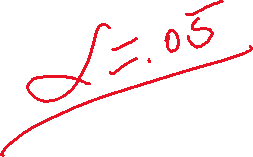 α=.05